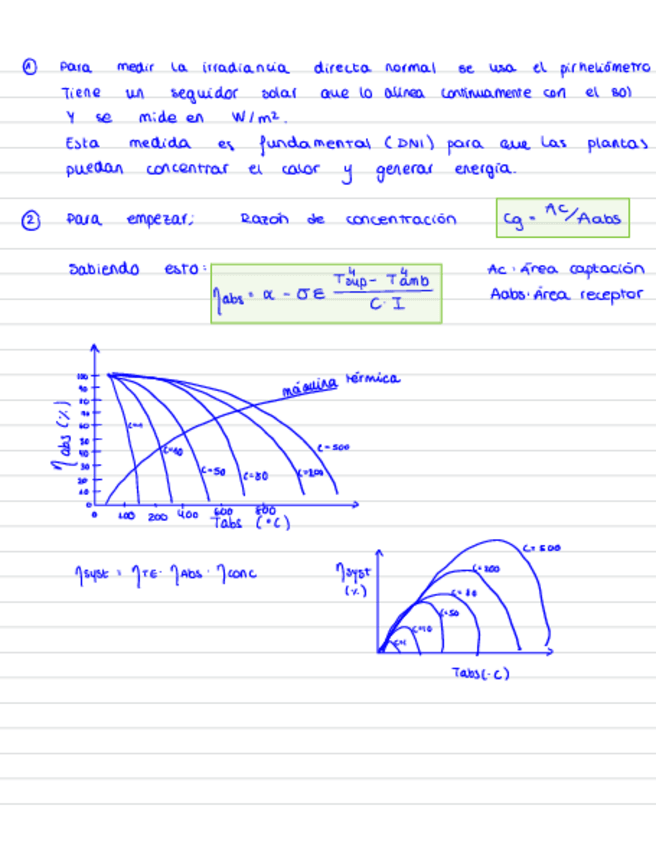 ① Para medir la irradiancia directa normal se usa el pirheliómetro
Tiene un seguidor solar que lo alinea continuamente con el sol
Y se mide en W/m².
Esta medida es fundamental (DNI) para que las plantas
puedan concentrar el calor y generar energía.
② Para empezar: Razón de concentración Cg = Ac/Aabs
Sabiendo esto: ηabs = α - σE (T⁴sup - T⁴amb)/(C·I)
Ac: Área captación
Aabs: Área receptor
η abs (%)
100
90
80
70
60
50
40
30
20
10
0
máquina térmica
C=1
C=10
C=50
C=80
C=200
C=500
0 100 200 400 600 800
Tabs (°C)
ηsyst = ηTE · ηAbs · ηconc
ηsyst
(%)
C=500
C=200
C=80
C=50
C=10
C=1
Tabs(°C)